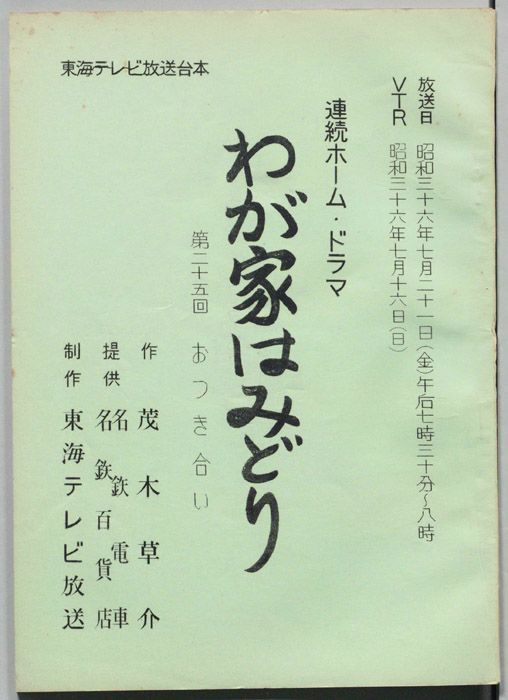 放送日 昭和三十六年七月二十一日(金)午后七時三十分~八時
VTR 昭和三十六年七月十六日(日)
連続ホーム・ドラマ
わが家はみどり
第二十五回 おつき合い
東海テレビ放送台本
作 茂木草介
提供 名鉄電車
名鉄百貨店
制作 東海テレビ放送